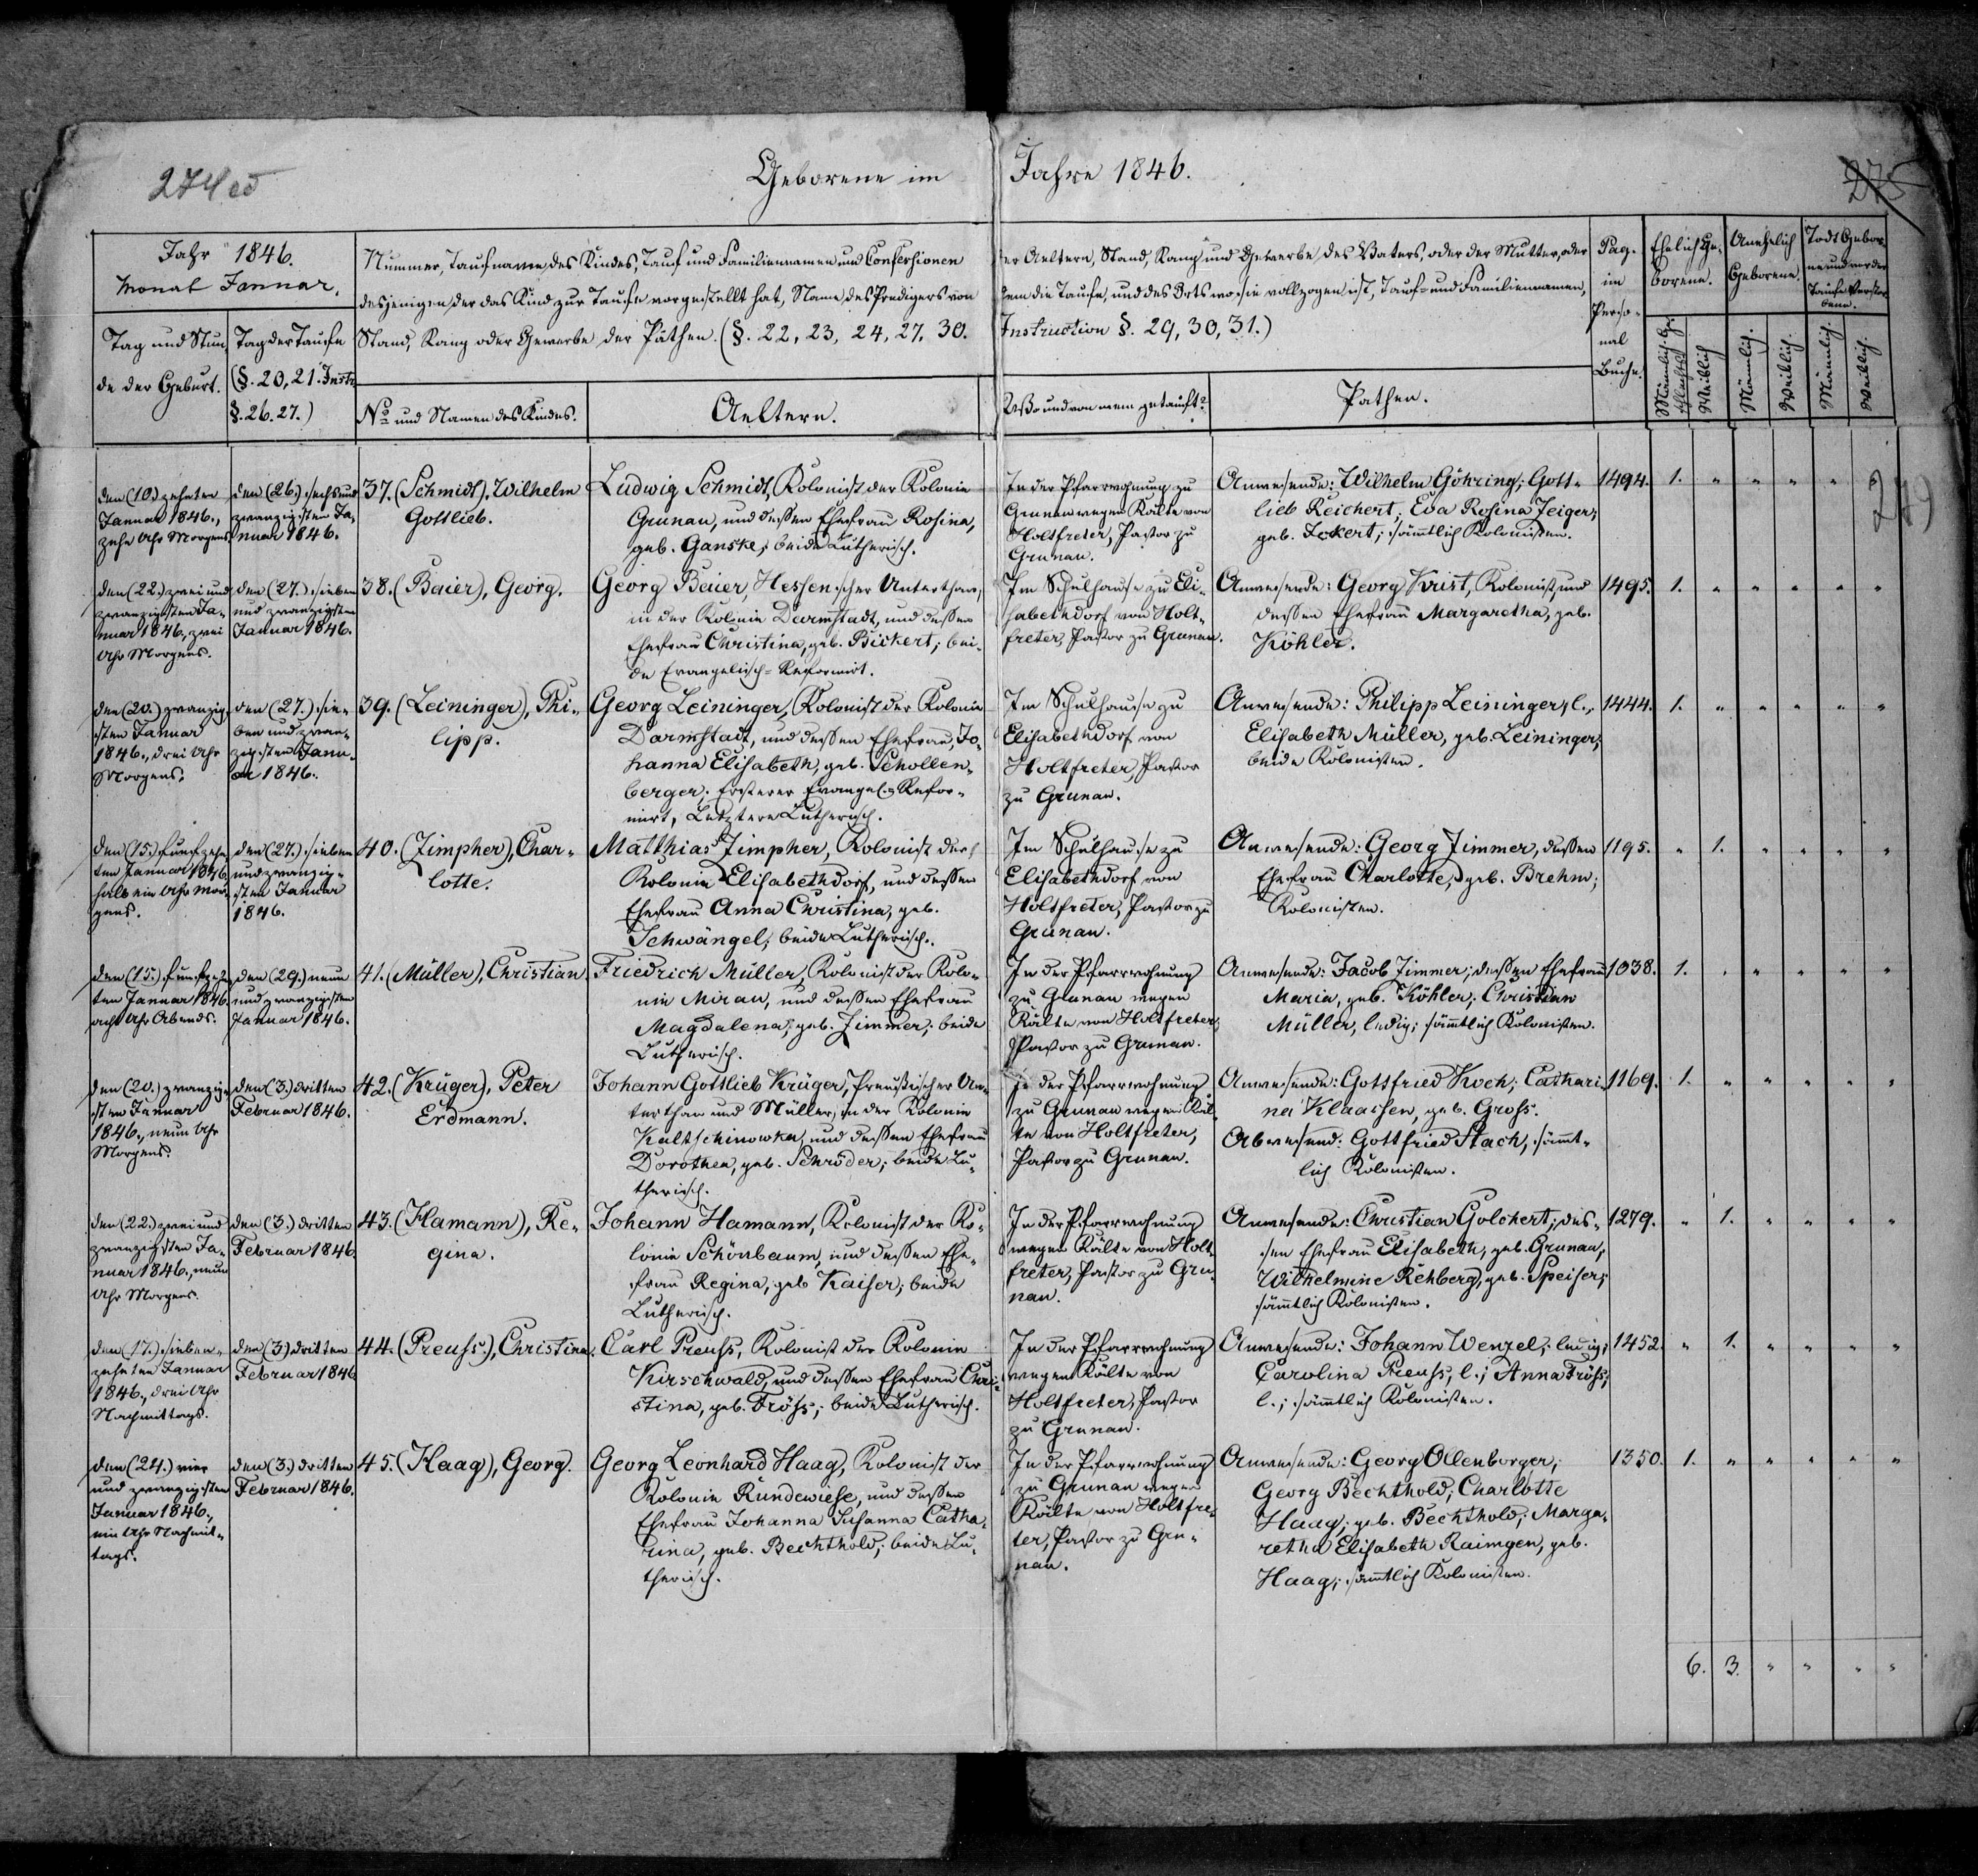 274 ed
Geborene im Jahre 1846.
275
279
Jahr 1846.
Monat Januar.
Tag und Stun-
de der Geburt.
Tag der Taufe
(§. 20, 21. Instr.
§. 26. 27.)
Nummer, Taufname des Kindes, Tauf und Familiennamen und Confessionen der Aeltern, Stand, Rang und Gewerbe des Vaters, oder der Mutter, oder
desjenigen der das Kind zur Taufe vorgestellt hat, Name des Predigers von dem die Taufe, und des Orts wo sie vollzogen ist, Tauf- und Familiennamen,
Stand, Rang oder Gewerbe der Pathen. (§. 22, 23, 24, 27, 30. Instruction §. 29, 30, 31.)
No und Namen des Kindes.
Aeltern.
Wo und von wem getauft?
Pathen.
Pag.
im
Perso-
nal
Buche.
Ehelich Ge-
borene.
Unehelich
Geborene.
Todt Gebor-
ne und vor der
Taufe Verstor-
bene.
Männlich. Ge-
schlechts
Weiblich
Männlich.
Weiblich.
Männlich.
Weiblich.
den (10.) zehnten
Januar 1846.,
zehn Uhr Morgens.
den (26.) sechs und
zwanzigsten Ja-
nuar 1846.
37. (Schmidt), Wilhelm
Gottlieb.
Ludwig Schmidt, Kolonist der Kolonie
Grunau, und dessen Ehefrau Rosina,
geb. Ganske; beide Lutherisch.
In der Pfarrwohnung zu
Grunau wegen Kälte von
Holtfreter, Pastor zu
Grunau.
Anwesende: Wilhelm Göhring; Gott-
lieb Reichert; Eva Rosina Zeiger,
geb. Jekert; sämtlich Kolonisten.
1494. 1. " " " " "
den (22.) zwei und
zwanzigsten Ja-
nuar 1846., zwei
Uhr Morgens.
den (27.) sieben
und zwanzigsten
Januar 1846.
38. (Baier), Georg.
Georg Baier, Hessenscher Unterthan,
in der Kolonie Darmstadt, und dessen
Ehefrau Christina, geb. Bickert; bei-
de Evangelisch-Reformirt.
Im Schulhause zu Eli-
sabethdorf von Holt-
freter, Pastor zu Grunau.
Anwesende: Georg Krist, Kolonist, und
dessen Ehefrau Margaretha, geb.
Köhler.
1495. 1. " " " " "
den (20.) zwanzig-
sten Januar
1846., drei Uhr
Morgens.
den (27.) sie-
ben und zwan-
zigsten Janu-
ar 1846.
39. (Leininger), Phi-
lipp.
Georg Leininger, Kolonist der Kolonie
Darmstadt, und dessen Ehefrau, Jo-
hanna Elisabeth, geb. Schollen-
berger; Ersterer Evangel.-Refor-
mirt, Letztere Lutherisch.
Im Schulhause zu
Elisabethdorf von
Holtfreter, Pastor
zu Grunau.
Anwesende: Philipp Leininger, l.,
Elisabeth Müller, geb. Leininger,
beide Kolonisten.
1444. 1. " " " " "
den (15.) fünfzehn-
ten Januar 1846.
halb ein Uhr Mor-
gens.
den (27.) sieben
und zwanzig-
sten Januar
1846.
40. (Zimpher), Char-
lotte.
Matthias Zimpher, Kolonist der
Kolonie Elisabethdorf, und dessen
Ehefrau Anna Christina, geb.
Schwängel; beide Lutherisch.
Im Schulhause zu
Elisabethdorf von
Holtfreter, Pastor zu
Grunau.
Anwesende: Georg Zimmer, dessen
Ehefrau Charlotte, geb. Brehm;
Kolonisten.
1195. " 1. " " " "
den (15.) fünfzehn-
ten Januar 1846.
acht Uhr Abends.
den (29.) neun
und zwanzigsten
Januar 1846.
41. (Müller), Christian.
Friedrich Müller, Kolonist der Kolo-
nie Mirau, und dessen Ehefrau
Magdalena, geb. Zimmer; beide
Lutherisch.
In der Pfarrwohnung
zu Grunau wegen
Kälte von Holtfreter,
Pastor zu Grunau.
Anwesende: Jacob Zimmer; dessen Ehefrau
Maria, geb. Köhler; Christian
Müller, ledig; sämtlich Kolonisten.
1038. 1. " " " " "
den (20.) zwanzig-
sten Januar
1846., neun Uhr
Morgens.
den (3.) dritten
Februar 1846.
42. (Krüger), Peter
Erdmann.
Johann Gottlieb Krüger, Preussischer Un-
terthan und Müller, in der Kolonie
Kaltschinowka, und dessen Ehefrau
Dorothea, geb. Schröder; beide Lu-
therisch.
In der Pfarrwohnung
zu Grunau wegen Käl-
te von Holtfreter,
Pastor zu Grunau.
Anwesende: Gottfried Koch; Cathari-
na Klaassen, geb. Gross.
Abwesend: Gottfried Stach, sämt-
lich Kolonisten.
1169. 1. " " " " "
den (22.) zwei und
zwanzigsten Ja-
nuar 1846., neun
Uhr Morgens.
den (3.) dritten
Februar 1846.
43. (Hamann), Re-
gina.
Johann Hamann, Kolonist der Ko-
lonie Schönbaum, und dessen Ehe-
frau Regina, geb. Kaiser; beide
Lutherisch.
In der Pfarrwohnung
wegen Kälte von Holt-
freter, Pastor zu Gru-
nau.
Anwesende: Christian Golchert; des-
sen Ehefrau Elisabeth, geb. Grunau,
Wilhelmine Rehberg, geb. Speiser;
sämtlich Kolonisten.
1279. " 1. " " " "
den (17.) sieben-
zehnten Januar
1846., drei Uhr
Nachmittags.
den (3) dritten
Februar 1846
44. (Preuss), Christina.
Carl Preuss, Kolonist der Kolonie
Kirschwald, und dessen Ehefrau Chri-
stina, geb. Fröss; beide Lutherisch.
In der Pfarrwohnung
wegen Kälte von
Holtfreter, Pastor
zu Grunau.
Anwesende: Johann Wenzel, ledig;
Carolina Preuss, l.; Anna Fröss,
l.; sämtlich Kolonisten.
1452. " 1. " " " "
den (24.) vier
und zwanzigsten
Januar 1846.,
ein Uhr Nachmit-
tags.
den (3.) dritten
Februar 1846.
45. (Haag), Georg.
Georg Leonhard Haag, Kolonist der
Kolonie Rundewiese, und dessen
Ehefrau Johanna Susanna Catha-
rina, geb. Bechthold; beide Lu-
therisch.
In der Pfarrwohnung
zu Grunau wegen
Kälte von Holtfre-
ter, Pastor zu Gru-
nau.
Anwesende: Georg Ollenborger;
Georg Bechthold; Charlotte
Haag, geb. Bechthold; Marga-
retha Elisabeth Raimgen, geb.
Haag; sämtlich Kolonisten.
1350. 1. " " " " "
6. 3. " " " "